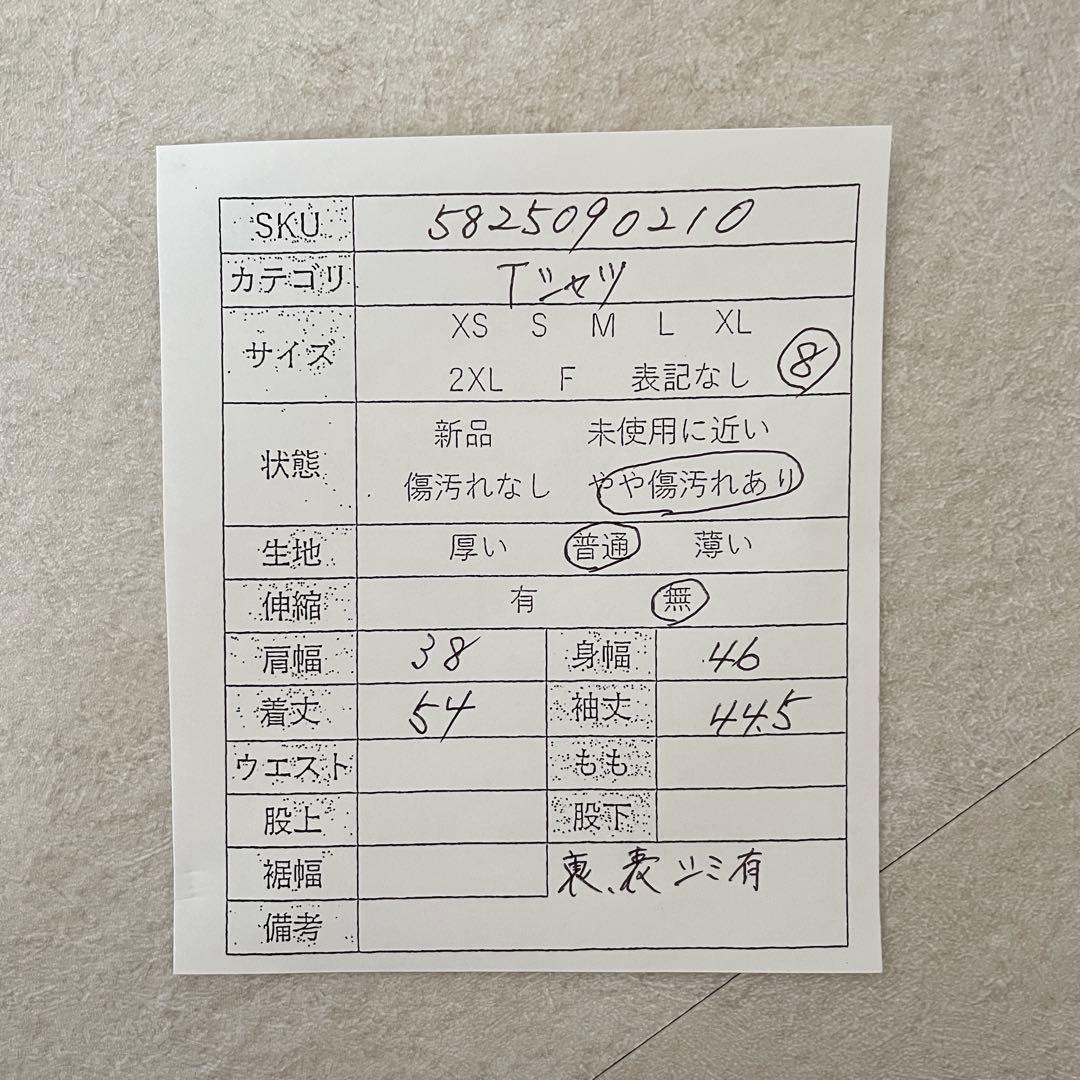 SKU 5825090210
カテゴリ Tシャツ
サイズ XS S M L XL
2XL F 表記なし 8
状態 新品 未使用に近い
傷汚れなし やや傷汚れあり
生地 厚い 普通 薄い
伸縮 有 無
肩幅 38 身幅 46
着丈 54 袖丈 44.5
ウエスト もも
股上 股下
裾幅 裏、表シミ有
備考